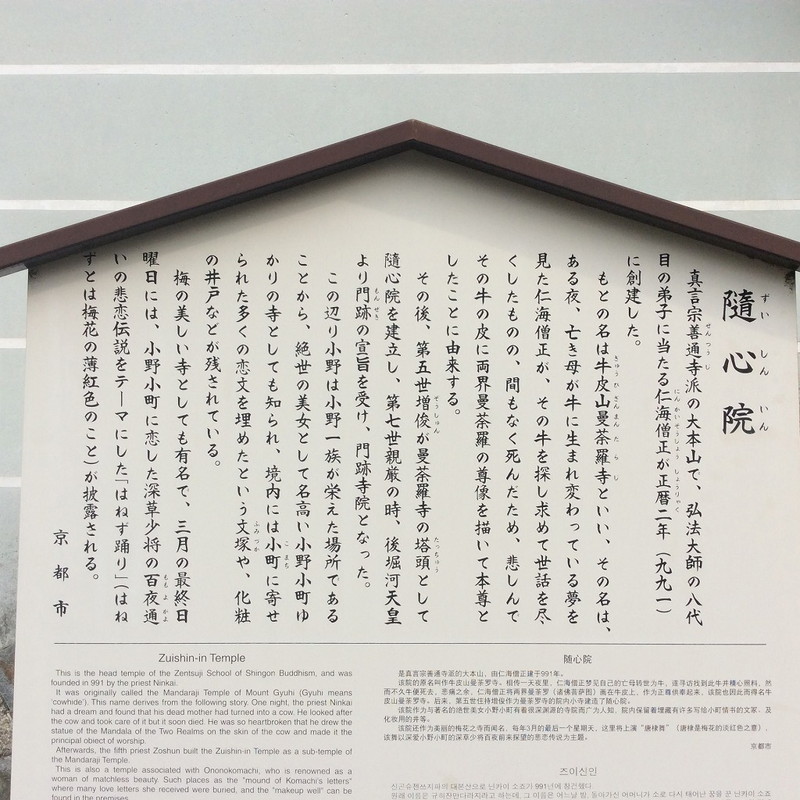 隨心院
ずい しん いん
真言宗善通寺派の大本山で、弘法大師の八代
目の弟子に当たる仁海僧正が正暦二年（九九一）
に創建した。
もとの名は牛皮山曼荼羅寺といい、その名は、
ある夜、亡き母が牛に生まれ変わっている夢を
見た仁海僧正が、その牛を探し求めて世話を尽
くしたものの、間もなく死んだため、悲しんで
その牛の皮に両界曼荼羅の尊像を描いて本尊と
したことに由来する。
その後、第五世増俊が曼荼羅寺の塔頭として
隨心院を建立し、第七世親厳の時、後堀河天皇
より門跡の宣旨を受け、門跡寺院となった。
この辺り小野は小野一族が栄えた場所である
ことから、絶世の美女として名高い小野小町ゆ
かりの寺としても知られ、境内には小町に寄せ
られた多くの恋文を埋めたという文塚や、化粧
の井戸などが残されている。
梅の美しい寺としても有名で、三月の最終日
曜日には、小野小町に恋した深草少将の百夜通
いの悲恋伝説をテーマにした「はねず踊り」（はね
ずとは梅花の薄紅色のこと）が披露される。
京都市
Zuishin-in Temple
This is the head temple of the Zentsuji School of Shingon Buddhism, and was
founded in 991 by the priest Ninkai.
It was originally called the Mandaraji Temple of Mount Gyuhi (Gyuhi means
'cowhide'). This name derives from the following story. One night, the priest Ninkai
had a dream and found that his dead mother had turned into a cow. He looked after
the cow and took care of it but it soon died. He was so heartbroken that he drew the
statue of the Mandala of the Two Realms on the skin of the cow and made it the
principal object of worship.
Afterwards, the fifth priest Zoshun built the Zuishin-in Temple as a sub-temple of
the Mandaraji Temple.
This is also a temple associated with Ononokomachi, who is renowned as a
woman of matchless beauty. Such places as the "mound of Komachi's letters"
where many love letters she received were buried, and the "makeup well" can be
found in the premises.
随心院
是真言宗善通寺派的大本山，由仁海僧正建于991年。
该院的原名叫作牛皮山曼荼罗寺。相传一天夜里，仁海僧正梦见自己的亡母转世为牛，遂寻访找到此牛并精心照料，然
而不久牛便死去，悲痛之余，仁海僧正将两界曼荼罗（诸佛菩萨图）画在牛皮上，作为正尊供奉起来，该院也因此而得名牛
皮山曼荼罗寺。后来，第五世住持增俊作为曼荼罗寺的院内小寺建造了随心院。
该院作为与著名的绝世美女小野小町有着很深渊源的寺院而广为人知，院内保留着埋藏有许多写给小町情书的文冢、及
化妆用的井等。
该院还作为美丽的梅花之寺而闻名，每年3月的最后一个星期天，这里将上演“唐棣舞”（唐棣是梅花的淡红色之意），
该舞以深爱小野小町的深草少将百夜前来探望的悲恋传说为主题。
京都市
즈이신인